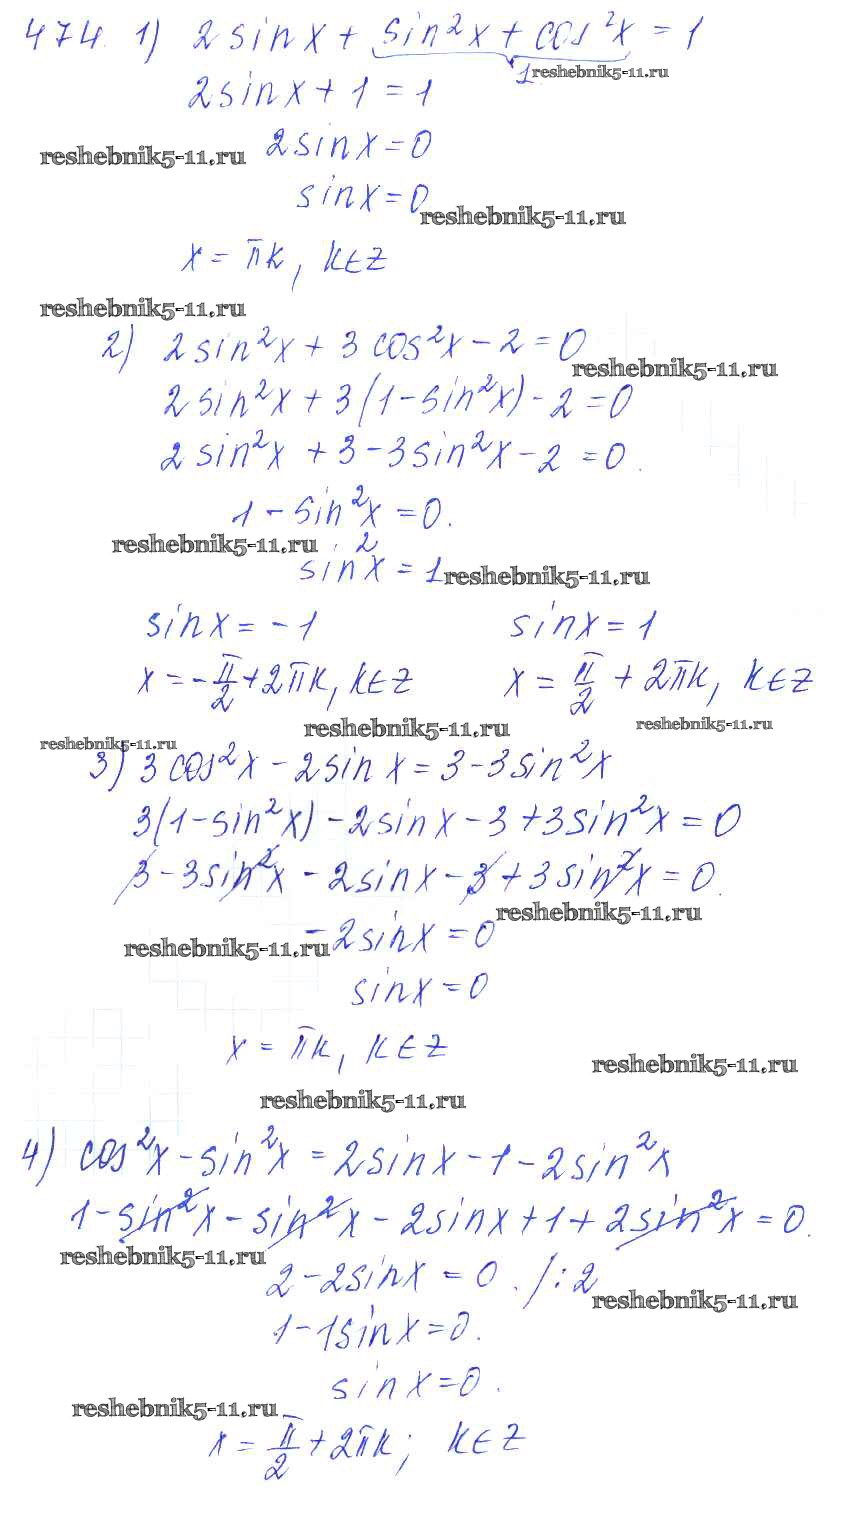 474. 1) 2sinx + sin²x + cos²x = 1
1 reshebnik5-11.ru
2sinx + 1 = 1
reshebnik5-11.ru 2sinx = 0
sinx = 0
reshebnik5-11.ru
x = πk, k∈Z
reshebnik5-11.ru
2) 2sin²x + 3cos²x - 2 = 0
reshebnik5-11.ru
2sin²x + 3(1 - sin²x) - 2 = 0
2sin²x + 3 - 3sin²x - 2 = 0.
1 - sin²x = 0.
reshebnik5-11.ru
sin²x = 1 reshebnik5-11.ru
sinx = -1 sinx = 1
x = -π/2 + 2πk, k∈Z x = π/2 + 2πk, k∈Z
reshebnik5-11.ru reshebnik5-11.ru
reshebnik5-11.ru
3) 3cos²x - 2sinx = 3 - 3sin²x
3(1 - sin²x) - 2sinx - 3 + 3sin²x = 0
3 - 3sin²x - 2sinx - 3 + 3sin²x = 0.
reshebnik5-11.ru
reshebnik5-11.ru -2sinx = 0
sinx = 0
x = πk, k∈Z
reshebnik5-11.ru
reshebnik5-11.ru
4) cos²x - sin²x = 2sinx - 1 - 2sin²x
1 - sin²x - sin²x - 2sinx + 1 + 2sin²x = 0.
reshebnik5-11.ru
2 - 2sinx = 0. /:2
reshebnik5-11.ru
1 - 1sinx = 0.
sinx = 0.
reshebnik5-11.ru
x = π/2 + 2πk; k∈Z